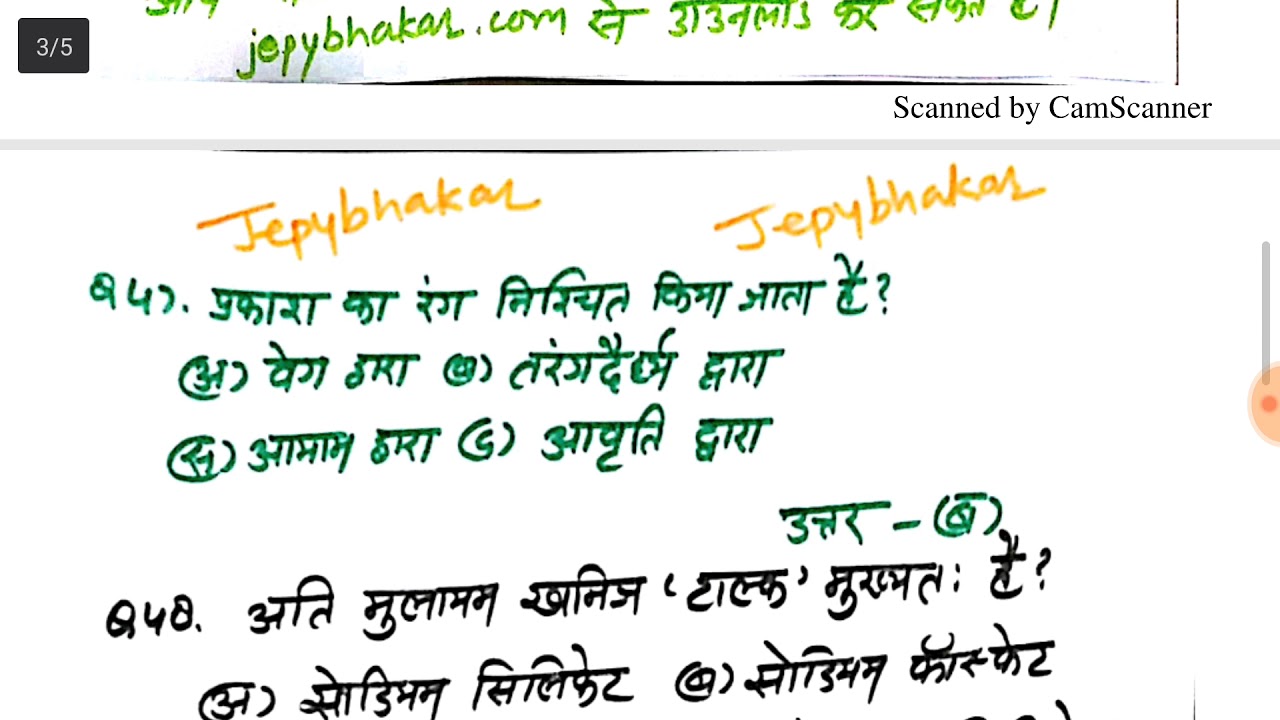 3/5
jepybhakar.com से डाउनलोड कर सकते हैं।
Scanned by CamScanner
Jepybhakar Jepybhakar
Q47. प्रकाश का रंग निश्चित किया जाता है?
(अ) वेग द्वारा (ब) तरंगदैर्ध्य द्वारा
(स) आयाम द्वारा (द) आवृति द्वारा
उत्तर - (ब)
Q48. अति मुलायम खनिज 'टाल्क' मुख्यतः है?
(अ) सोडियम सिलिकेट (ब) सोडियम फॉस्फेट